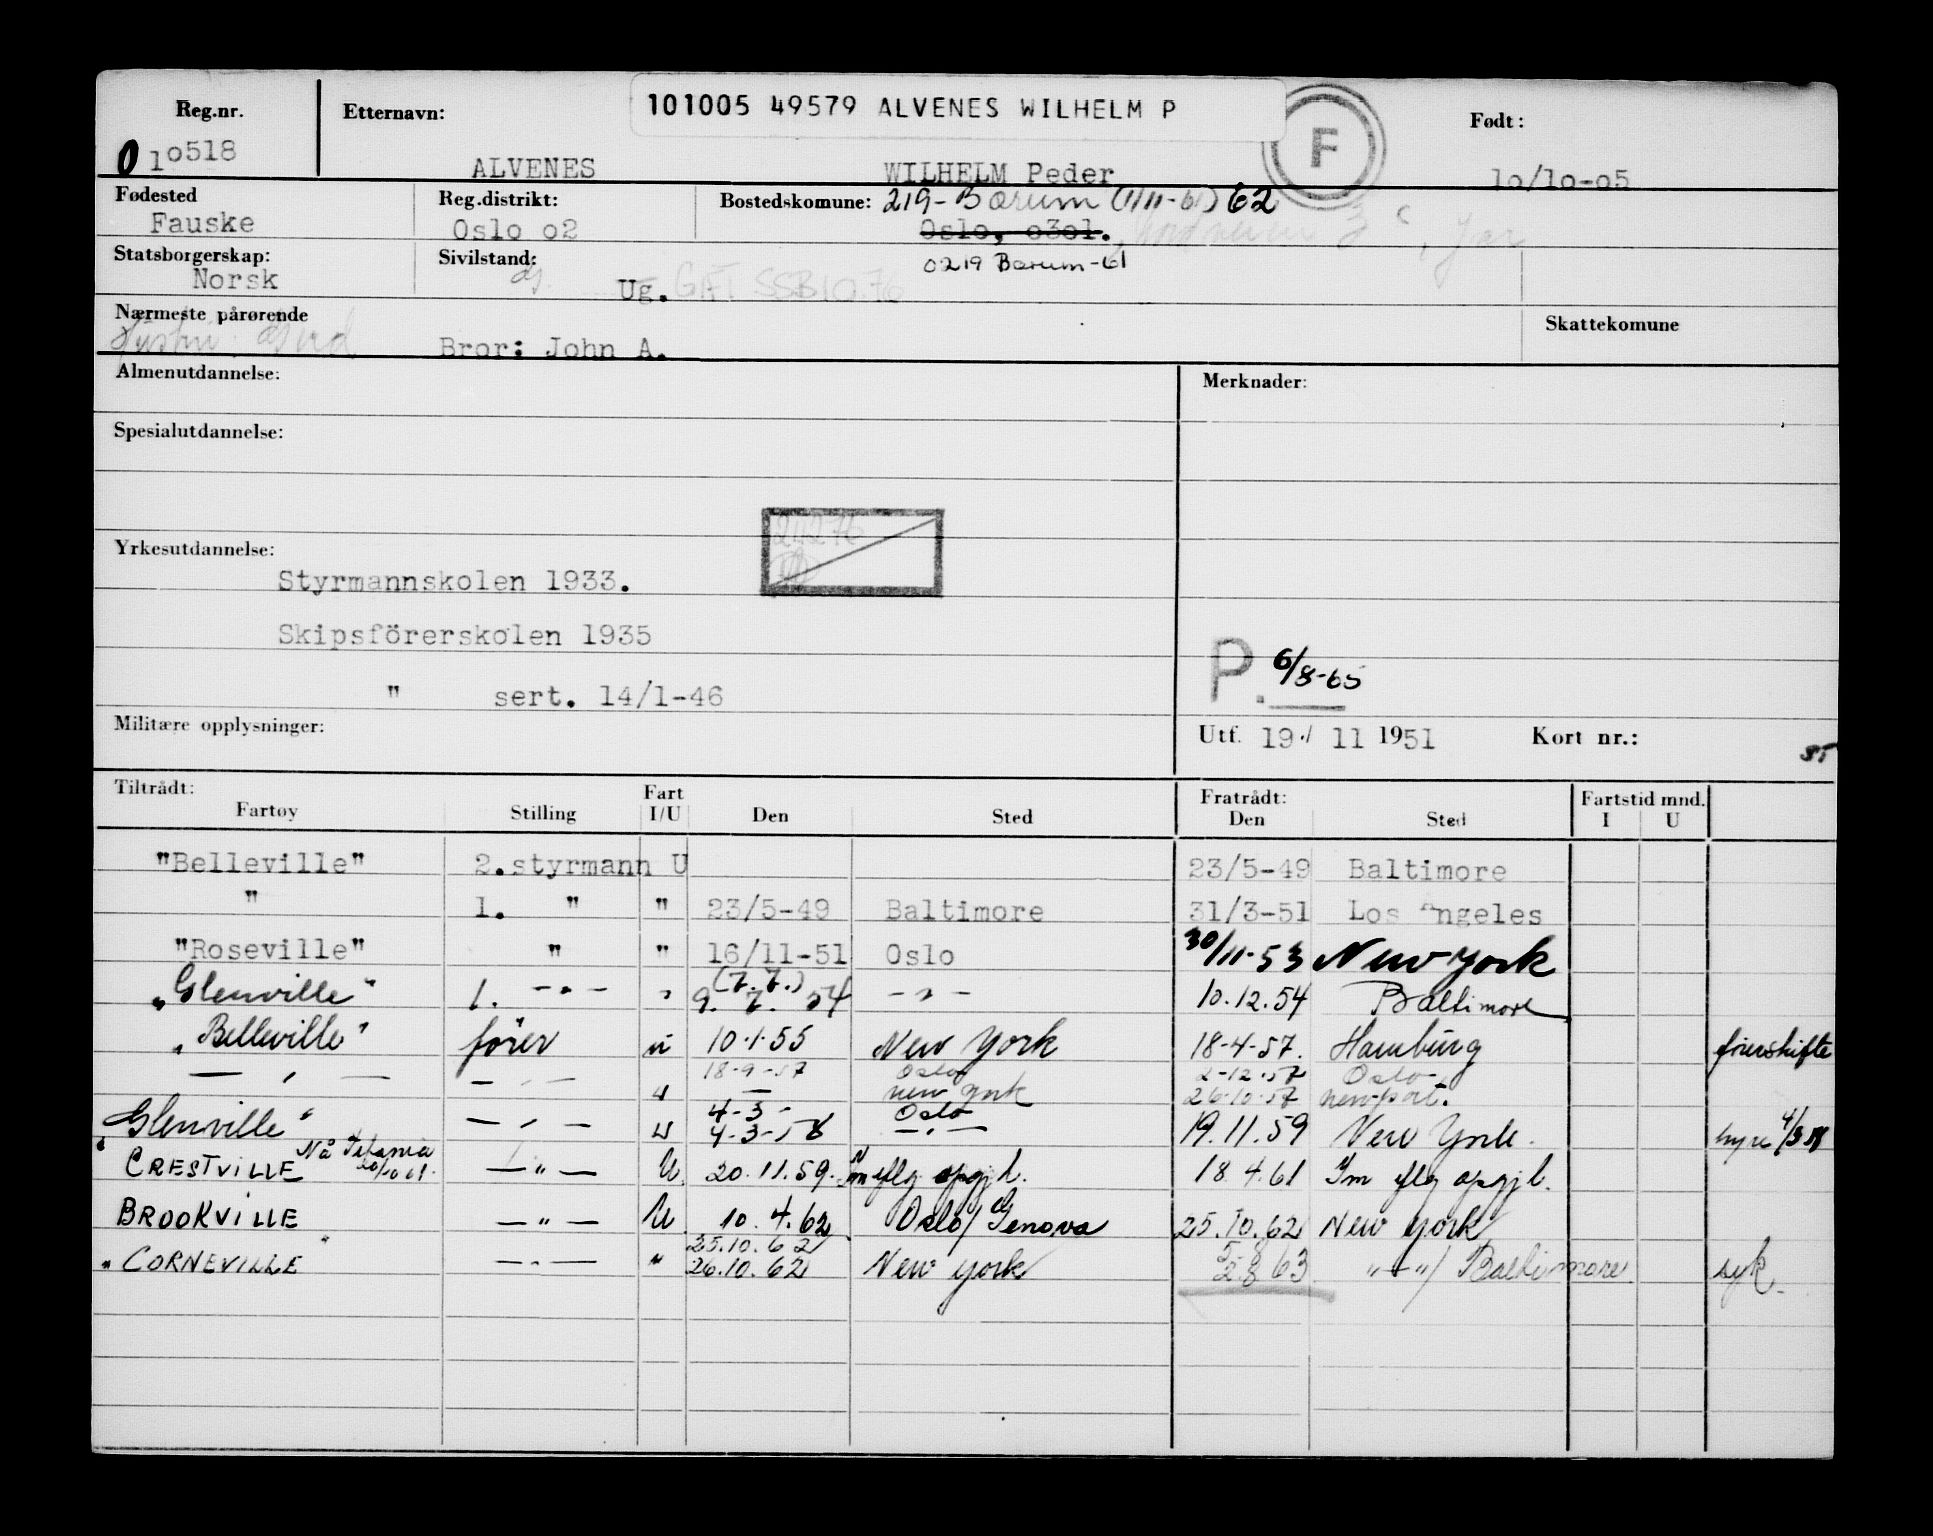 101005 49579 ALVENES WILHELM P
Reg.nr. Etternavn: Født:
0 10518 ALVENES WILHELM Peder F 10/10-05
Fødested Reg.distrikt: Bostedskomune: 219-Bærum (1/11-61) 62
Fauske Oslo o2 Oslo, o3o1.
Statsborgerskap: Sivilstand: 0219 Bærum-61
Norsk Ug. GAT SSB 10.76
Nærmeste pårørende Skattekomune
Hustru: Bror: John A.
Almenutdannelse: Merknader:
Spesialutdannelse:
Yrkesutdannelse:
Styrmannskolen 1933.
Skipsförerskolen 1935
P. 6/8-65
" sert. 14/1-46
Militære opplysninger: Utf. 19/ 11 1951 Kort nr.:
Tiltrådt: Fart Fratrådt: Fartstid mnd.
Fartøy Stilling I/U Den Sted Den Sted I U
"Belleville" 2.styrmann U 23/5-49 Baltimore
" 1. " " 23/5-49 Baltimore 31/3-51 Los Angeles
"Roseville" " " 16/11-51 Oslo 30/11-53 New York
"Glenville" 1. -"- " (7.7.) 9. 7. 54 -"- 10.12.54 Baltimore
"Belleville" förer u 10.1.55 New York 18-4-57. Hamburg
— " — — " — 18-9-57 Oslo 2-12-57 Oslo
u — New York 26.10.57 Newport.
"Glenville" — " — u 4-3- Oslo
4-3-58 — " — 19.11.59 New York. hyre 4/3 58
CRESTVILLE Nå Titania 20/10 61. — " — U 20.11.59. Im flg opgj h. 18.4.61 Im flg opgj h.
BROOKVILLE — " — U 10.4.62 Oslo/Genova 25.10.62 New York
25.10.62
"CORNEVILLE" — " — " 26.10.62 New York 63 "—"/ Baltimore syk.